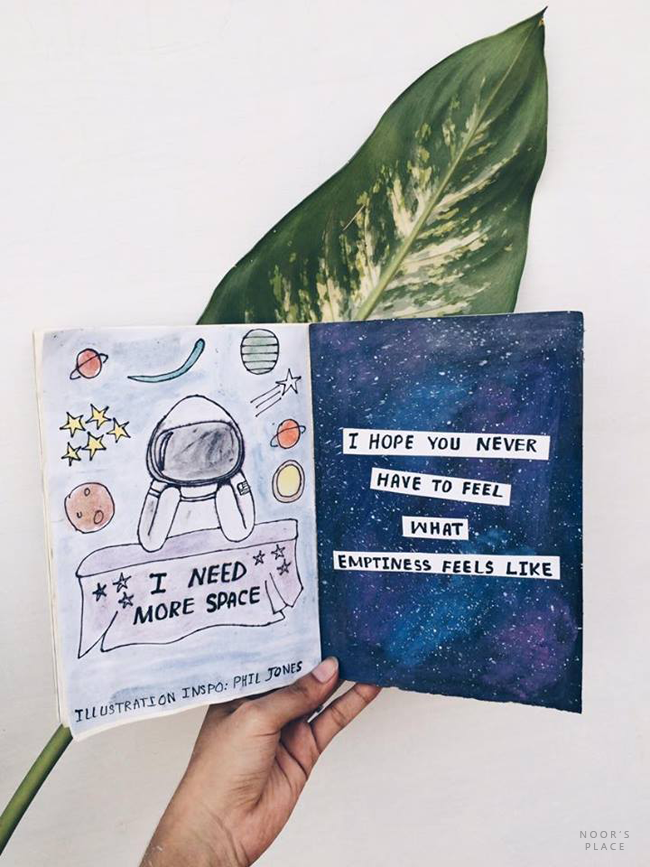 I NEED
MORE SPACE
ILLUSTRATION INSPO: PHIL JONES
I HOPE YOU NEVER
HAVE TO FEEL
WHAT
EMPTINESS FEELS LIKE
NOOR'S
PLACE